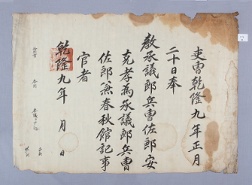 吏曹乾隆九年正月
二十日奉
教承議郎兵曹佐郎安
克孝爲承議郎兵曹
佐郎兼春秋館記事
官者
乾隆九年 月 日